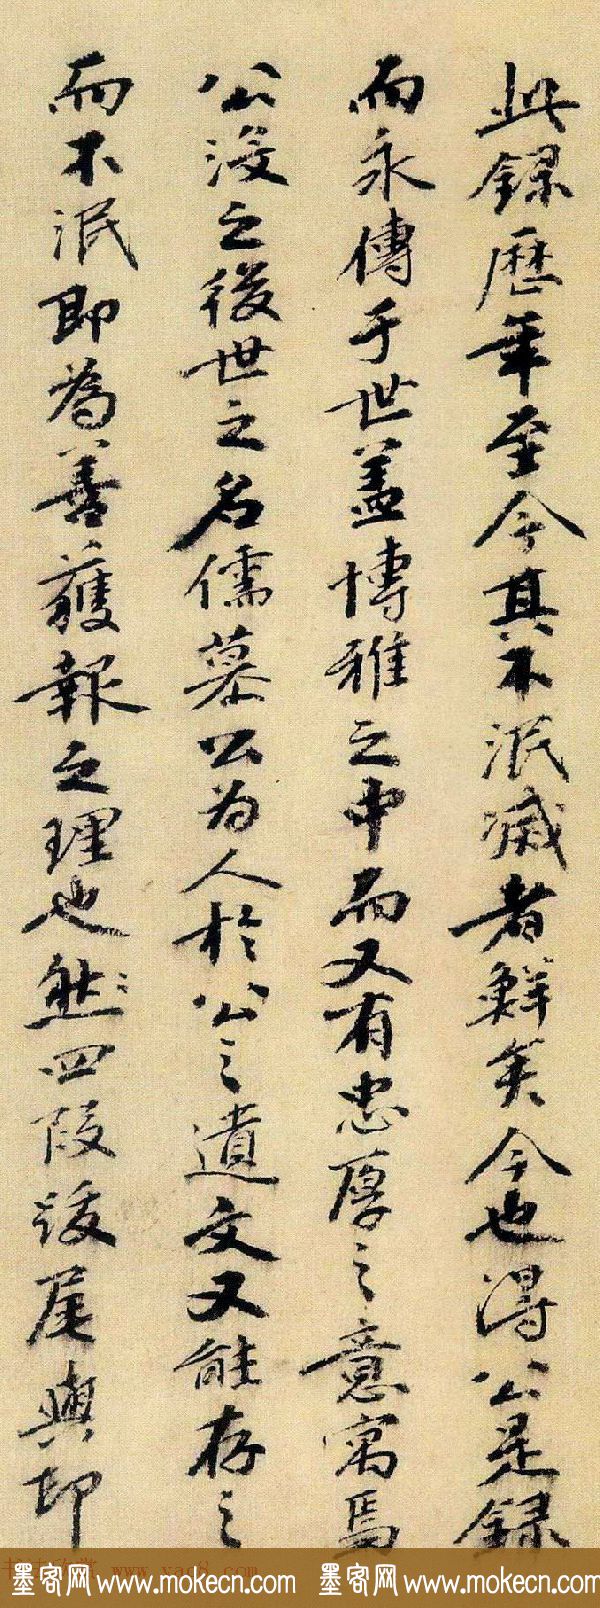 此錄歷年至今其不泯滅者鮮矣今也得公是録
而永傳于世盖博雅之中而又有忠厚之意寓焉
公没之後世之名儒慕公为人於公之遺文又能存之
而不泯即為善獲報之理也然四段跋尾與印
墨客网 www.mokecn.com 墨客网 www.mokecn.com